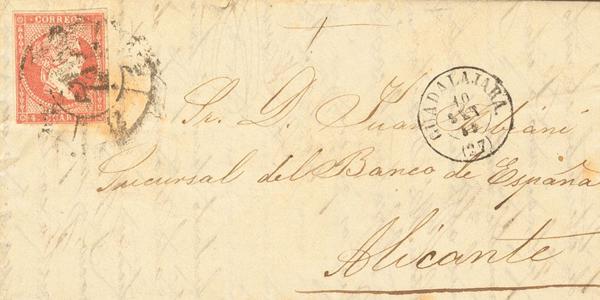 CORREOS
4 CUARTOS
GUADALAJARA.
10
(27)
Sr. D. Juan
Sucursal del Banco de España
Alicante